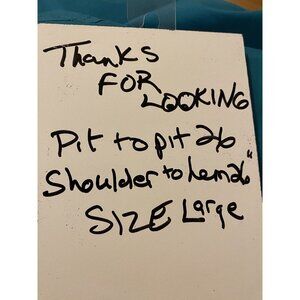 Thanks
FOR
LOOKING
Pit to pit 26
Shoulder to hem 26"
SIZE Large